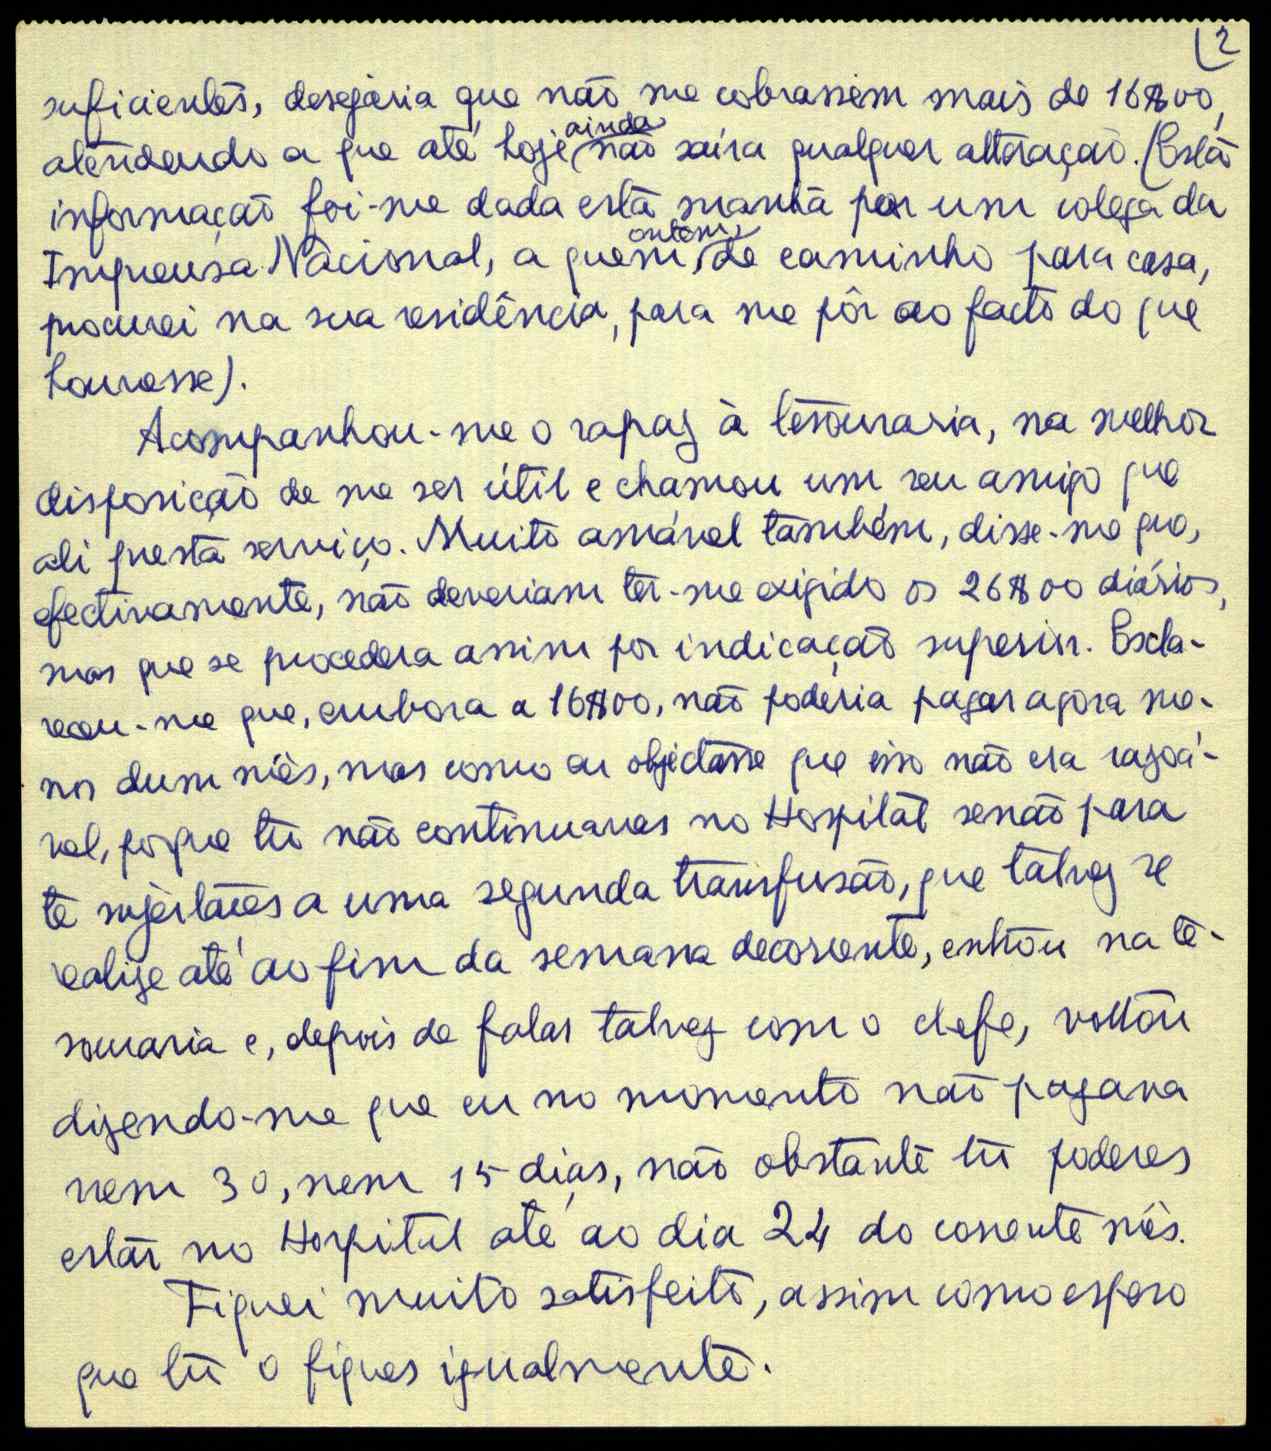 (2
suficientes, desejaria que não me cobrassem mais de 16$00,
atendendo a que até hoje ainda não saíra qualquer alteração. (Esta
informação foi-me dada esta manhã por um colega da
Imprensa Nacional, a quem, ontem, de caminho para casa,
procurei na sua residência, para me pôr ao facto do que
houvesse).
Acompanhou-me o rapaz à tesouraria, na melhor
disposição de me ser útil e chamou um seu amigo que
ali presta serviço. Muito amável também, disse-me que,
efectivamente, não deveriam ter-me exigido os 26$00 diários,
mas que se procedera assim por indicação superior. Escla-
receu-me que, embora a 16$00, não poderia pagar agora me-
nos dum mês, mas como eu objectasse que isso não era razoá-
vel, porque tu não continuavas no Hospital senão para
te sujeitares a uma segunda transfusão, que talvez se
realize até ao fim da semana decorrente, entrou na te-
souraria e, depois de falar talvez com o chefe, voltou
dizendo-me que eu no momento não pagava
nem 30, nem 15 dias, não obstante tu poderes
estar no Hospital até ao dia 24 do corrente mês.
Fiquei muito satisfeito, assim como espero
que tu o fiques igualmente.